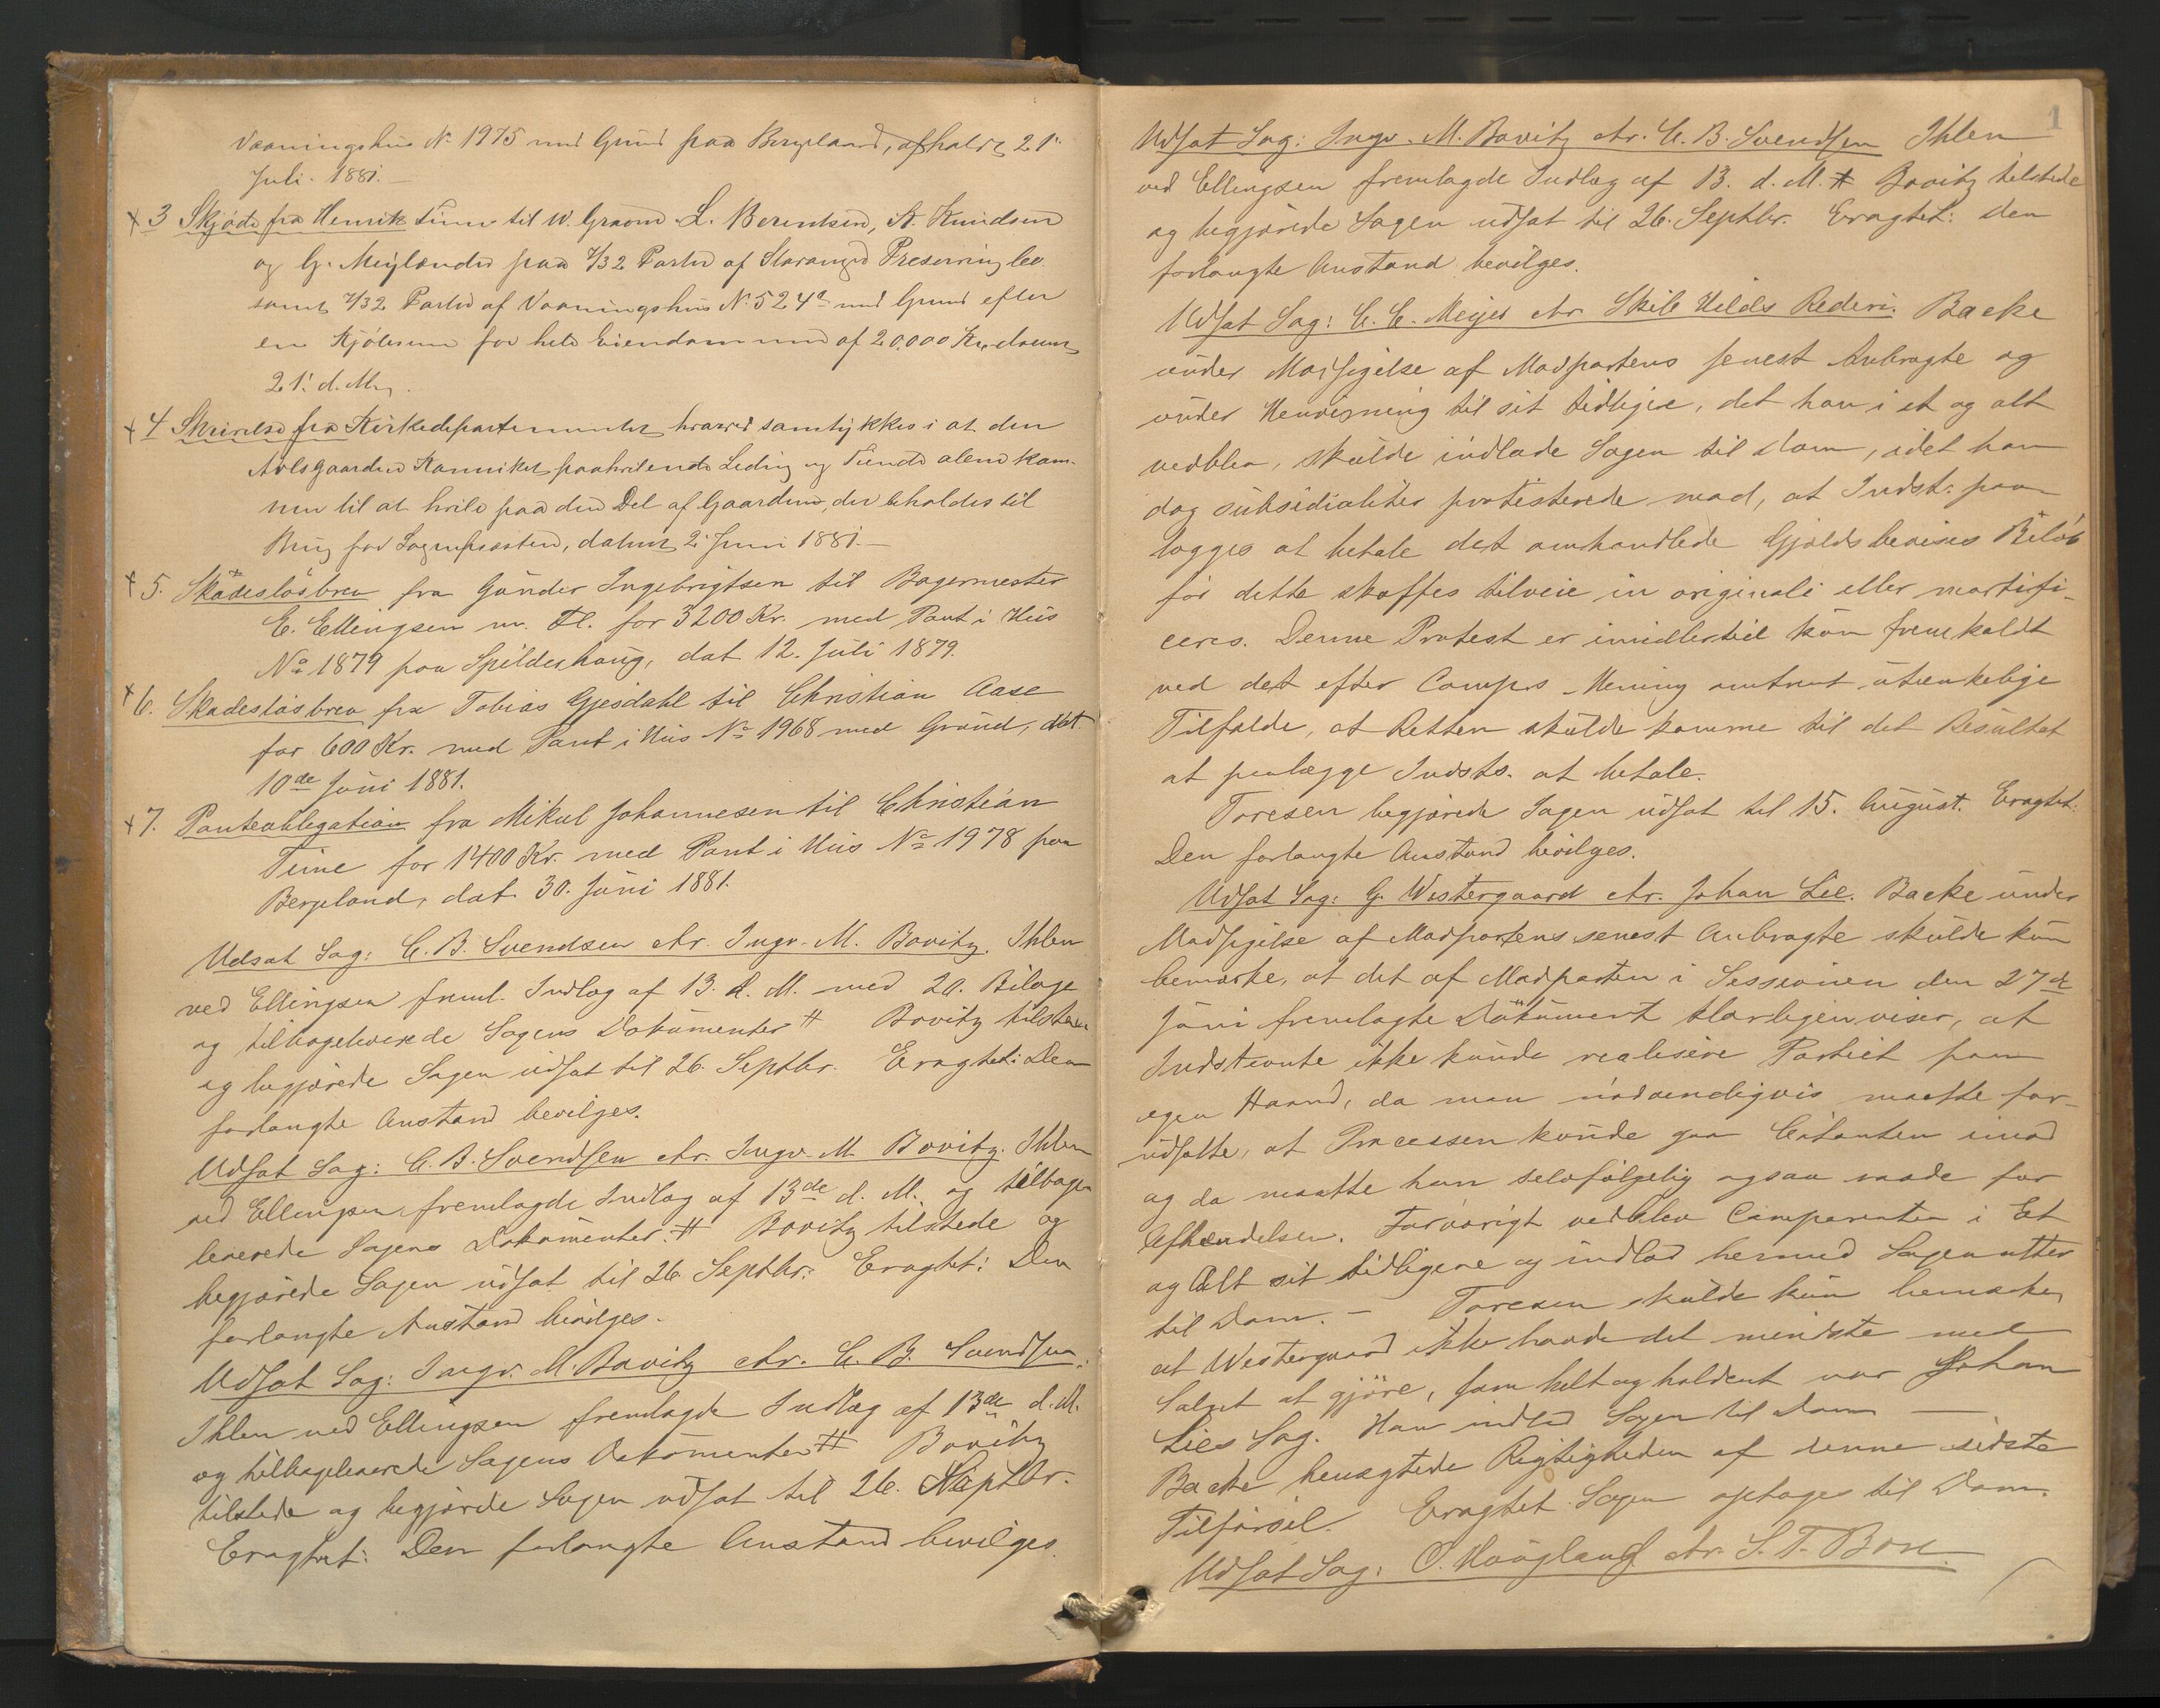 Vaaningshus No 1975 med Grund paa Bergeland, afholdt 21.
Juli 1881.—
+ 3 Skjøde fra Henrik Finne til W. Graom L. Berentsen, A. Knudsen
og G. Meylænder paa 7/32 Parter af Stavanger Preserving Co.
samt 7/32 Parter af Vaaningshus No 524a med Grund efter
en Kjøbesum for hele Eiendommen af 20,000 Kr, dateret
21. d. M.
+ 4 Skrivelse fra Kirkedepartementet hvorved samtykkes i at den
Avlsgaarden Kanniket paahvilende Leding og Tiende alene kom-
mer til at hvile paa den Del af Gaarden, der beholdes til
Brug for Sognepræsten, dateret 2. Juni 1881.—
+ 5. Skadesløsbrev fra Gunder Ingebrigtsen til Bagermester
E. Ellingsen m. Fl. for 3200 Kr. med Pant i Hus
No 1879 paa Spilderhaug, dat 12. Juli 1879.
+ 6. Skadesløsbrev fra Tobias Gjesdahl til Christian Aase
for 600 Kr. med Pant i Hus No 1968 med Grund, dat.
10de Juni 1881.
+ 7. Panteobligation fra Mikal Johannesen til Christian
Time for 1400 Kr. med Pant i Hus No 1978 paa
Bergeland, dat 30. Juni 1881.
Udsat Sag: C. B. Svendsen ctr. Ingv. M. Bovitz. Ihlen
ved Ellingsen freml. Indlæg af 13. d. M. med 20. Bilage
og tilbageleverede Sagens Dokumenter # Bovitz tilstede
og begjærede Sagen udsat til 26. Septbr. Eragtet: Den
forlangte Anstand bevilges.
Udsat Sag: C. B. Svendsen ctr. Ingv. M. Bovitz. Ihlen
ved Ellingsen fremlagde Indlæg af 13de d. M. og tilbage
leverede Sagens Dokumenter. # Bovitz tilstede og
begjærede Sagen udsat til 26. Septbr. Eragtet: Den
forlangte Anstand bevilges.
Udsat Sag: Ingv. M. Bovitz ctr. C. B. Svendsen.
Ihlen ved Ellingsen fremlagde Indlæg af 13de d. M.
og tilbageleverede Sagens Dokumenter # Bovitz
tilstede og begjærede Sagen udsat til 26. Septbr.
Eragtet: Den forlangte Anstand bevilges.
1
Udsat Sag: Ingv. M. Bovitz ctr. C. B. Svendsen Ihlen
ved Ellingsen fremlagde Indlæg af 13. d. M. # Bovitz tilstede
og begjærede Sagen udsat til 26. Septbr. Eragtet: den
forlangte Anstand bevilges.
Udsat Sag: C. C. Meyer ctr Skib Helds Rederi. Backe
under Modsigelse af Modpartens senest Anbragte og
under Henvisning til sit tidligere, det han i et og alt
vedblev, skulde indlade Sagen til Dom, idet han
dog subsidialiter protesterede mod, at Indst. paa-
lægges at betale det omhandlede Gjældsbevises Beløb
før dette skaffes tilveie in originali eller mortifi-
ceres. Denne Protest er imidlertid kun fremkaldt
ved det efter Comp's Mening omtrent utænkelige
Tilfælde, at Retten skulde komme til det Resultat
at paalægge Indsts. at betale.
Toresen begjærede Sagen udsat til 15. August. Eragtet:
Den forlangte Anstand bevilges.
Udsat Sag: G. Westergaard ctr. Johan Lie. Backe under
Modsigelse af Modpartens senest Anbragte skulde kun
bemærke, at det af Modparten i Sessionen den 27de
Juni fremlagte Dokument klarligen viser, at
Indstevnte ikke kunde realisere Partiet paa
egen Haand, da man nødvendigvis maatte for-
udsætte, at Processen kunde gaa Citanten imod
og da maatte han selvfølgelig ogsaa raade for
Afhændelsen. Forøvrigt vedblev Comparenten i Et
og Alt sit tidligere og indlod hermed Sagen atter
til Dom. — Toresen skulde kun bemærke,
at Westergaard ikke havde det mindste med
Salget at gjøre, som helt og holdent var Johan
Lies Sag. Han indlod Sagen til Dom —
Backe benægtede Rigtigheden af denne sidste
Tilførsel. Eragtet Sagen optages til Dom.
Udsat Sag: O. Haugland ctr. S. T. Bore.